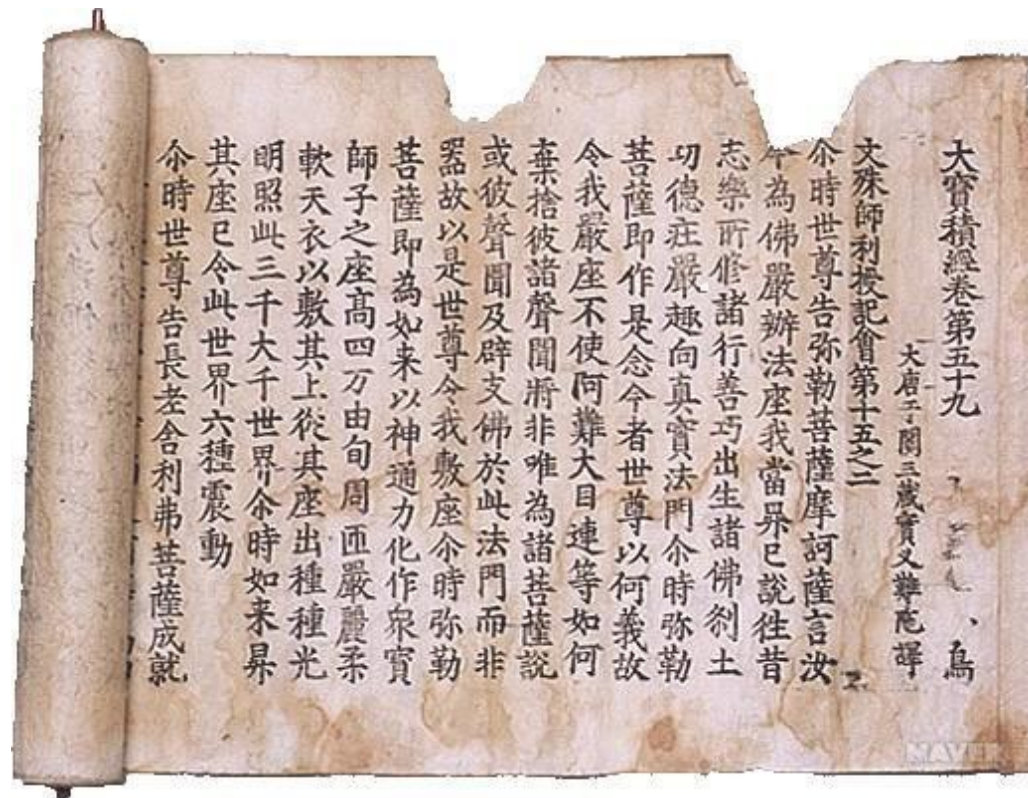 大寶積經卷第五十九 鳥
大唐于闐三藏實叉難陁譯
文殊師利授記會第十五之二
尒時世尊告弥勒菩薩摩訶薩言汝
今為佛嚴辦法座我當昇已說徃昔
志樂所修諸行善巧出生諸佛刹土
功德莊嚴趣向真實法門尒時弥勒
菩薩即作是念今者世尊以何義故
令我嚴座不使阿難大目連等如何
棄捨彼諸聲聞將非唯為諸菩薩說
或彼聲聞及辟支佛於此法門而非
器故以是世尊令我敷座尒時弥勒
菩薩即為如来以神通力化作衆寶
師子之座高四万由旬周匝嚴麗柔
軟天衣以敷其上從其座出種種光
明照此三千大千世界尒時如来昇
其座已令此世界六種震動
尒時世尊告長老舍利弗菩薩成就
NAVER